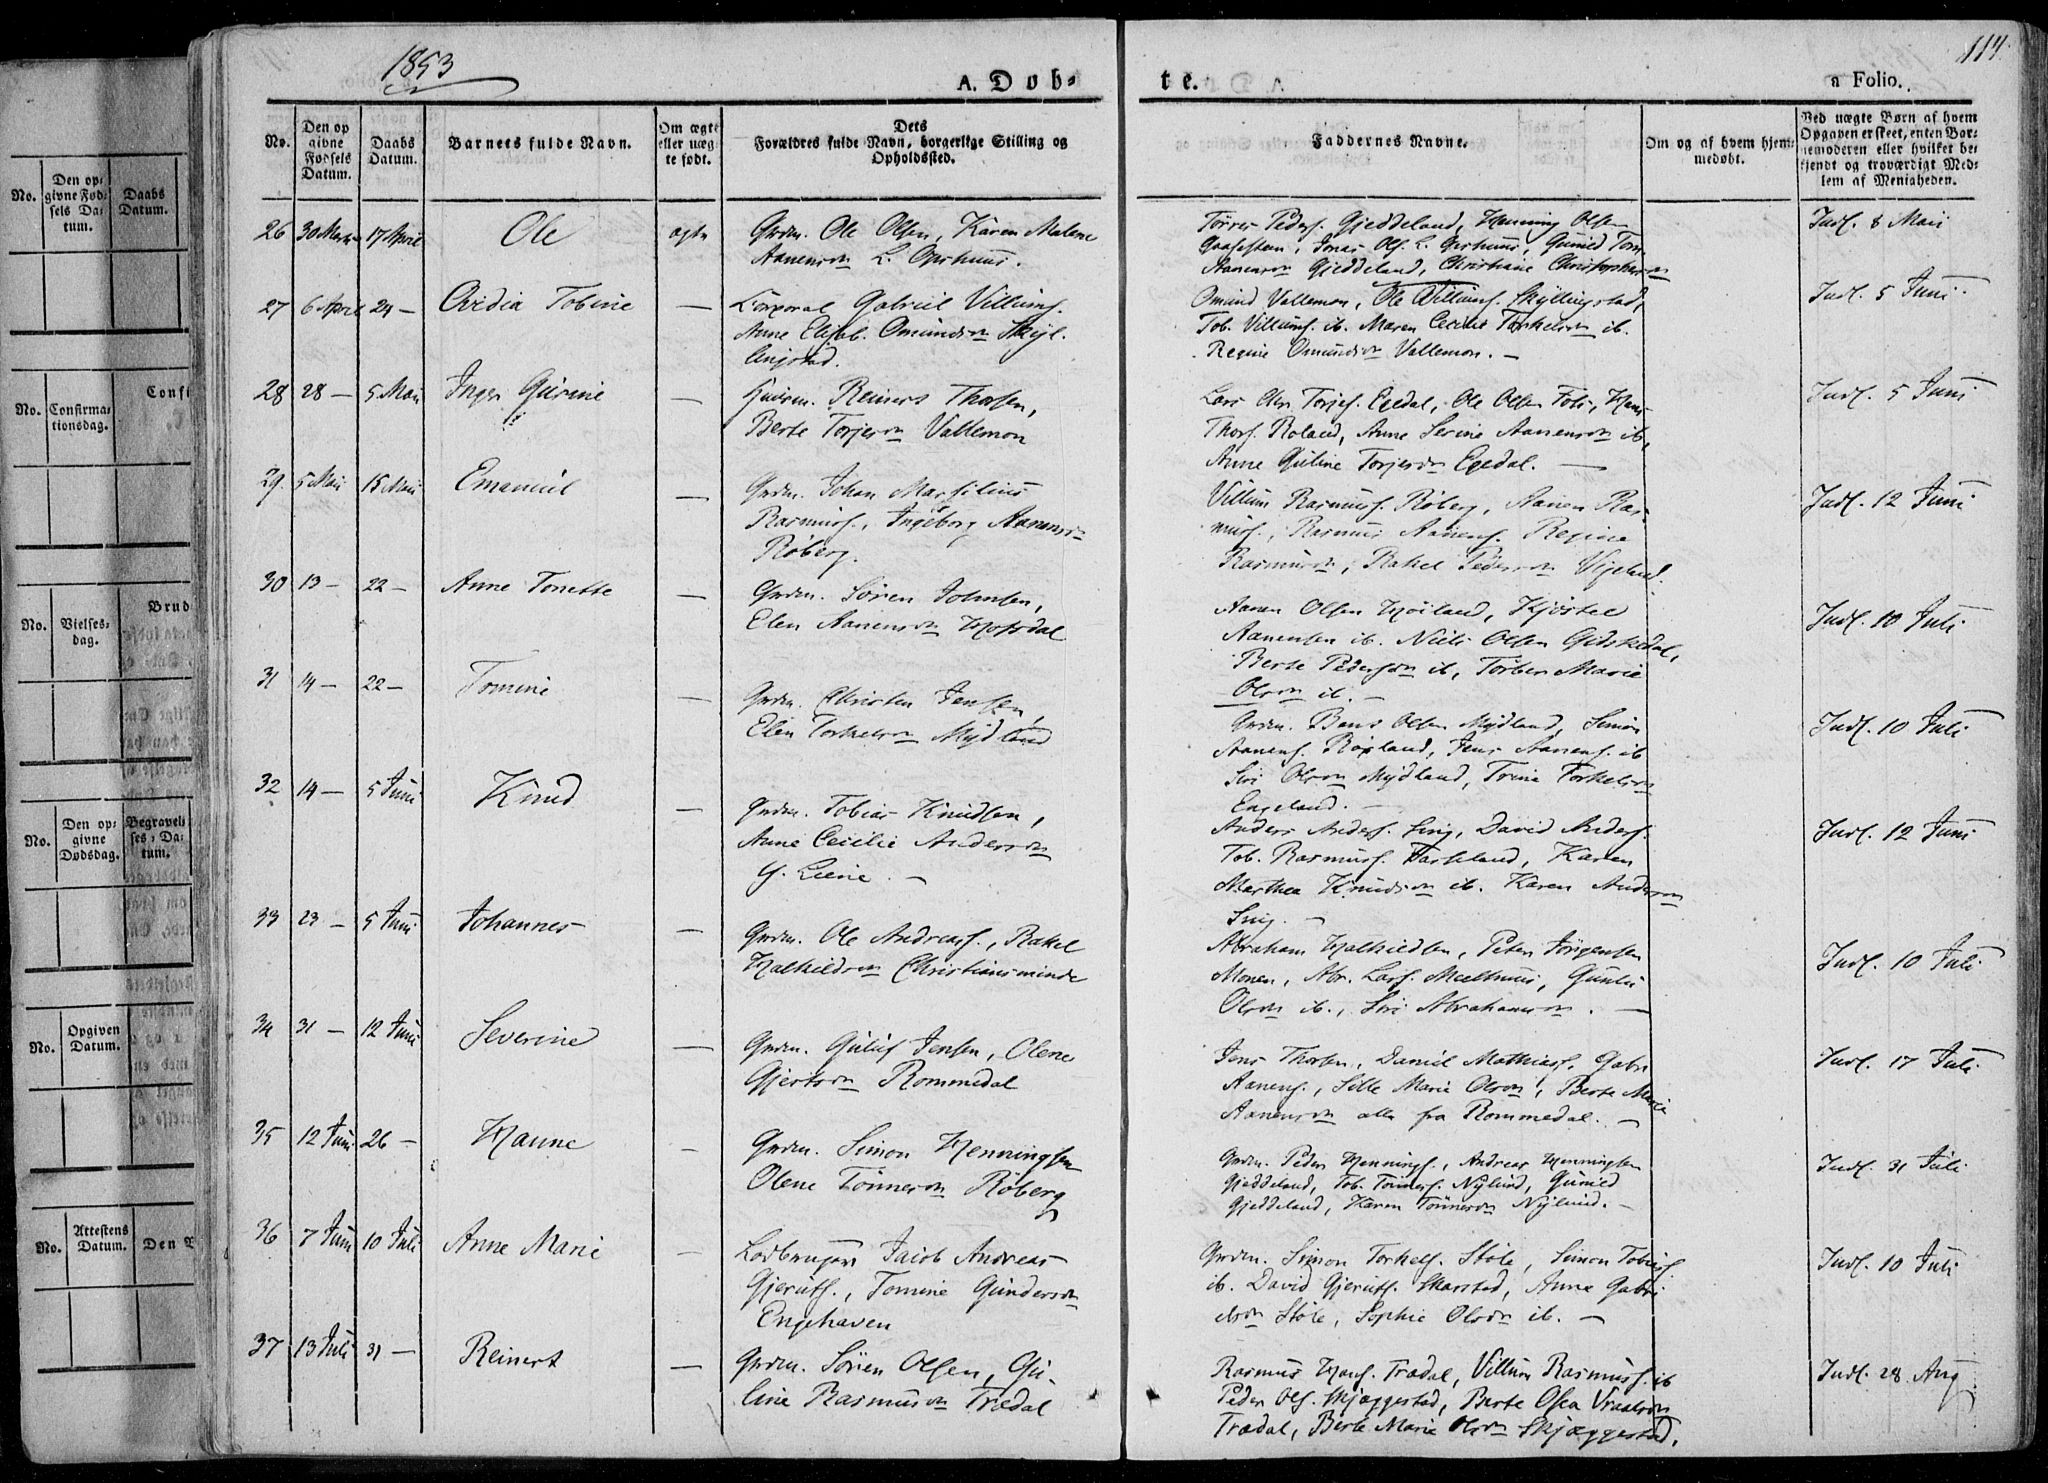 1853
114.
A. Døb-
te.
a Folio.
No.
Den op
givne
Fødsels
Datum.
Daabs
Datum.
Barnets fulde Navn.
Om ægte
eller uæg-
te født.
Dets
Forældres fulde Navn, borgerlige Stilling og
Opholdssted.
Faddernes Navne.
Om og af hvem hjem-
medøbt.
Ved uægte Børn af hvem
Opgaven er skeet, enten Bar-
nemoderen eller hvilket be-
kjendt og troværdigt Med-
lem af Menigheden.
26 30 Marts 17 April Ole ægte Grdm. Ole Olsen, Karen Malene
Aanensdn L. Opshuus.
Tørres Peders. Gjeddeland, Henning Olsen
Jonas Ols. L. Opshuus, Gunild Tom.
Aanensdn Gjeddeland, Christiane Christophersdn
Indl. 8 Maii
27 6 April 24 — Ovidia Tobine — Corporal Gabriel Villums.
Anne Elisab. Omundsdn Skyl-
lingstad.
Omund Vallemon, Ole Villums. Skyllingstad,
Tob. Villums. ib. Maren Cecilie Torkelsdn ib.
Regine Omundsdn Vallemon. —
Indl. 5 Juni
28 28 — 5 Maii Inger Gurine — Huusm. Reiners Thorsen,
Berte Torjesdn Vallemon
Lars Chr. Torjes. Egedal, Ole Olsen Foss, Hans
Thors. Roland, Anne Serine Aanensdn ib,
Anne Guline Torjesdn Egedal. —
Indl. 5 Juni
29. 5 Maii 15 Maii Emanuel — Grdm. Johan Marsilius
Rasmuss., Ingeborg Aanensdn
Røberg.
Villum Rasmuss. Røberg, Aanen Ras-
muss., Rasmus Aanens. Regine
Rasmusdn, Rakel Pedersdn Vigeland.
Indl. 12 Juni
30 13 — 22 — Anne Tonette — Grdm. Sören Johnsen,
Elen Aanensdn Homsdal
Aanen Olsen Høiland, Kjöstel
Aanensen ib. Niels Olsen Gidskedal,
Berte Pedersdn ib, Torber Marie
Olsdn ib. —
Indl. 10 Juli
31 14 — 22 — Tomine — Grdm. Christen Jensen,
Elen Torkelsdn Mydland
Grdm. Bent Olsen Mydland, Simon
Aanens. Røiland, Jens Aanens. ib
Siri Olsdn Mydland, Trine Torkelsdn
Engeland. —
Indl. 10 Juli
32 14 — 5 Juni Knud — Grdm. Tobias Knudsen,
Anne Cecilie Andersdn
Y. Liene. —
Anders Anders. Ling, David Anders.
Tob. Rasmuss. Faskeland, Karen
Marthea Knudsdn ib. Karen Andersdn
Ling. —
Indl. 12 Juni
33 23 — 5 Juni Johannes — Grdm. Ole Andreass., Rakel
Halkildsdn Christiansminde
Abraham Halkildsen, Peter Jörgensen
Monen, Abr. Lars. Meelhuus, Gunlu
Olsdn ib., Siri Abrahamsdn. —
Indl. 10 Juli
34 31 — 12 Juni Severine — Grdm. Guluf Jensen, Olene
Gjertsdn Rommedal
Jens Thorsen, Daniel Mathiass. Gabr.
Aanens., Sille Marie Olsdn, Berte Marie
Aanensdn alle fra Rommedal. —
Indl. 17 Juli
35 12 Juni 26 — Hanne — Grdm. Simon Henningsen
Olene Tönnesdn Röberg
Grdm. Peder Hennings., Andreas Henningsen
Gjeddeland, Tob. Tönnes. Nylund, Gunild
Gjeddeland, Karen Tönnesdn Nylund. —
Indl. 31 Juli
36 7 Juni 10 Juli Anne Marie — Lodbruger Jacob Andreas
Gjeruts., Tomine Gundersdn
Engehaven
Grdm. Simon Torkels. Støle, Simon Tobias.
ib. David Gjeruts. Skarstad, Anne Gabri-
elsdn Støle, Sophie Olsdn ib. —
Indl. 10 Juli
37 13 Juli 31 — Reinert — Grdm. Sören Olsen, Gu-
line Rasmusdn Trædal
Rasmus Hans. Trædal, Villum Rasmuss. ib
Peder Ols. Skjæggestad, Berte Olea Vraalsdn
Trædal, Berte Marie Olsdn Skjæggestad.
Indl. 28 Aug
No.
Den op-
givne Fød-
sels Da-
tum.
Daabs
Datum.
No.
Confirma-
tionsdag.
Confi
No.
Vielses-
dag.
Brud
No.
Den op-
givne
Dødsdag.
Begravel-
ses-Da-
tum.
No.
Opgiven
Datum.
No.
Attestens
Datum.
Den